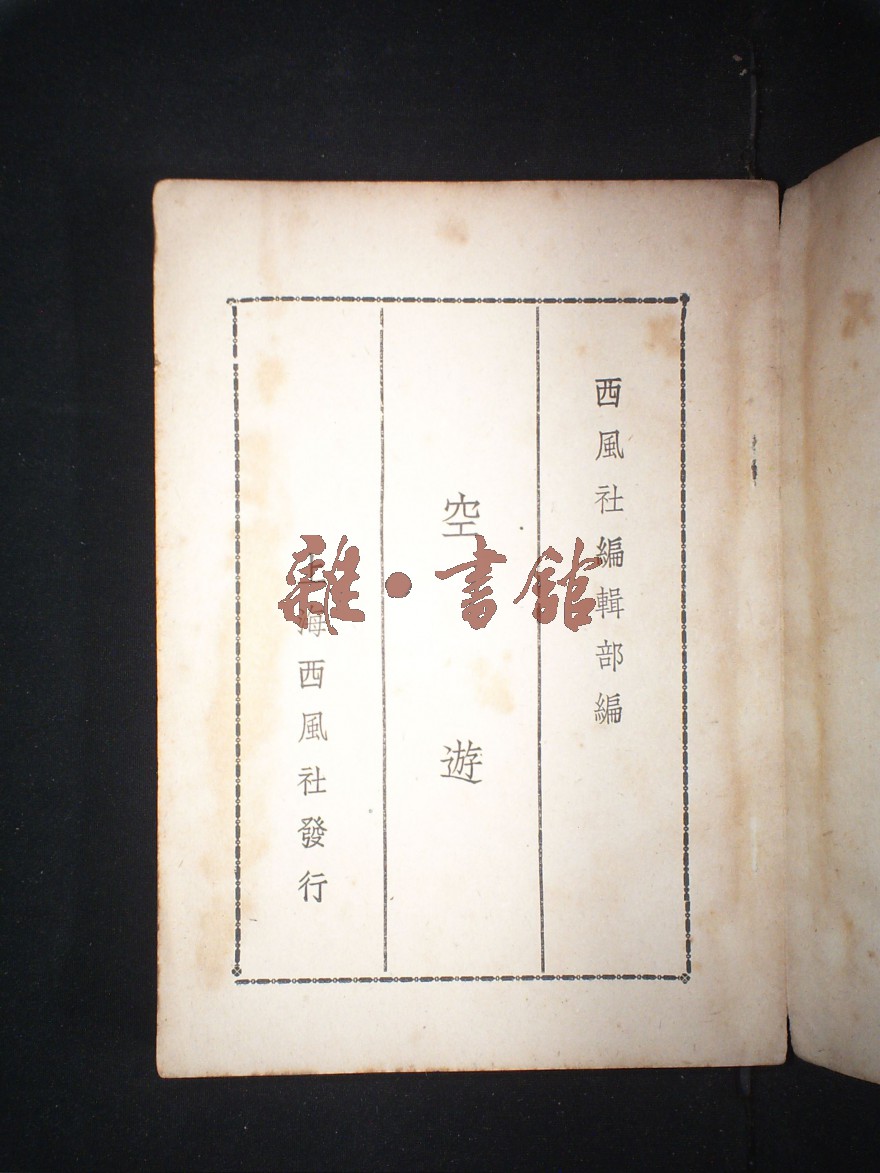 西風社編輯部編
空遊
上海西風社發行
雜·書館